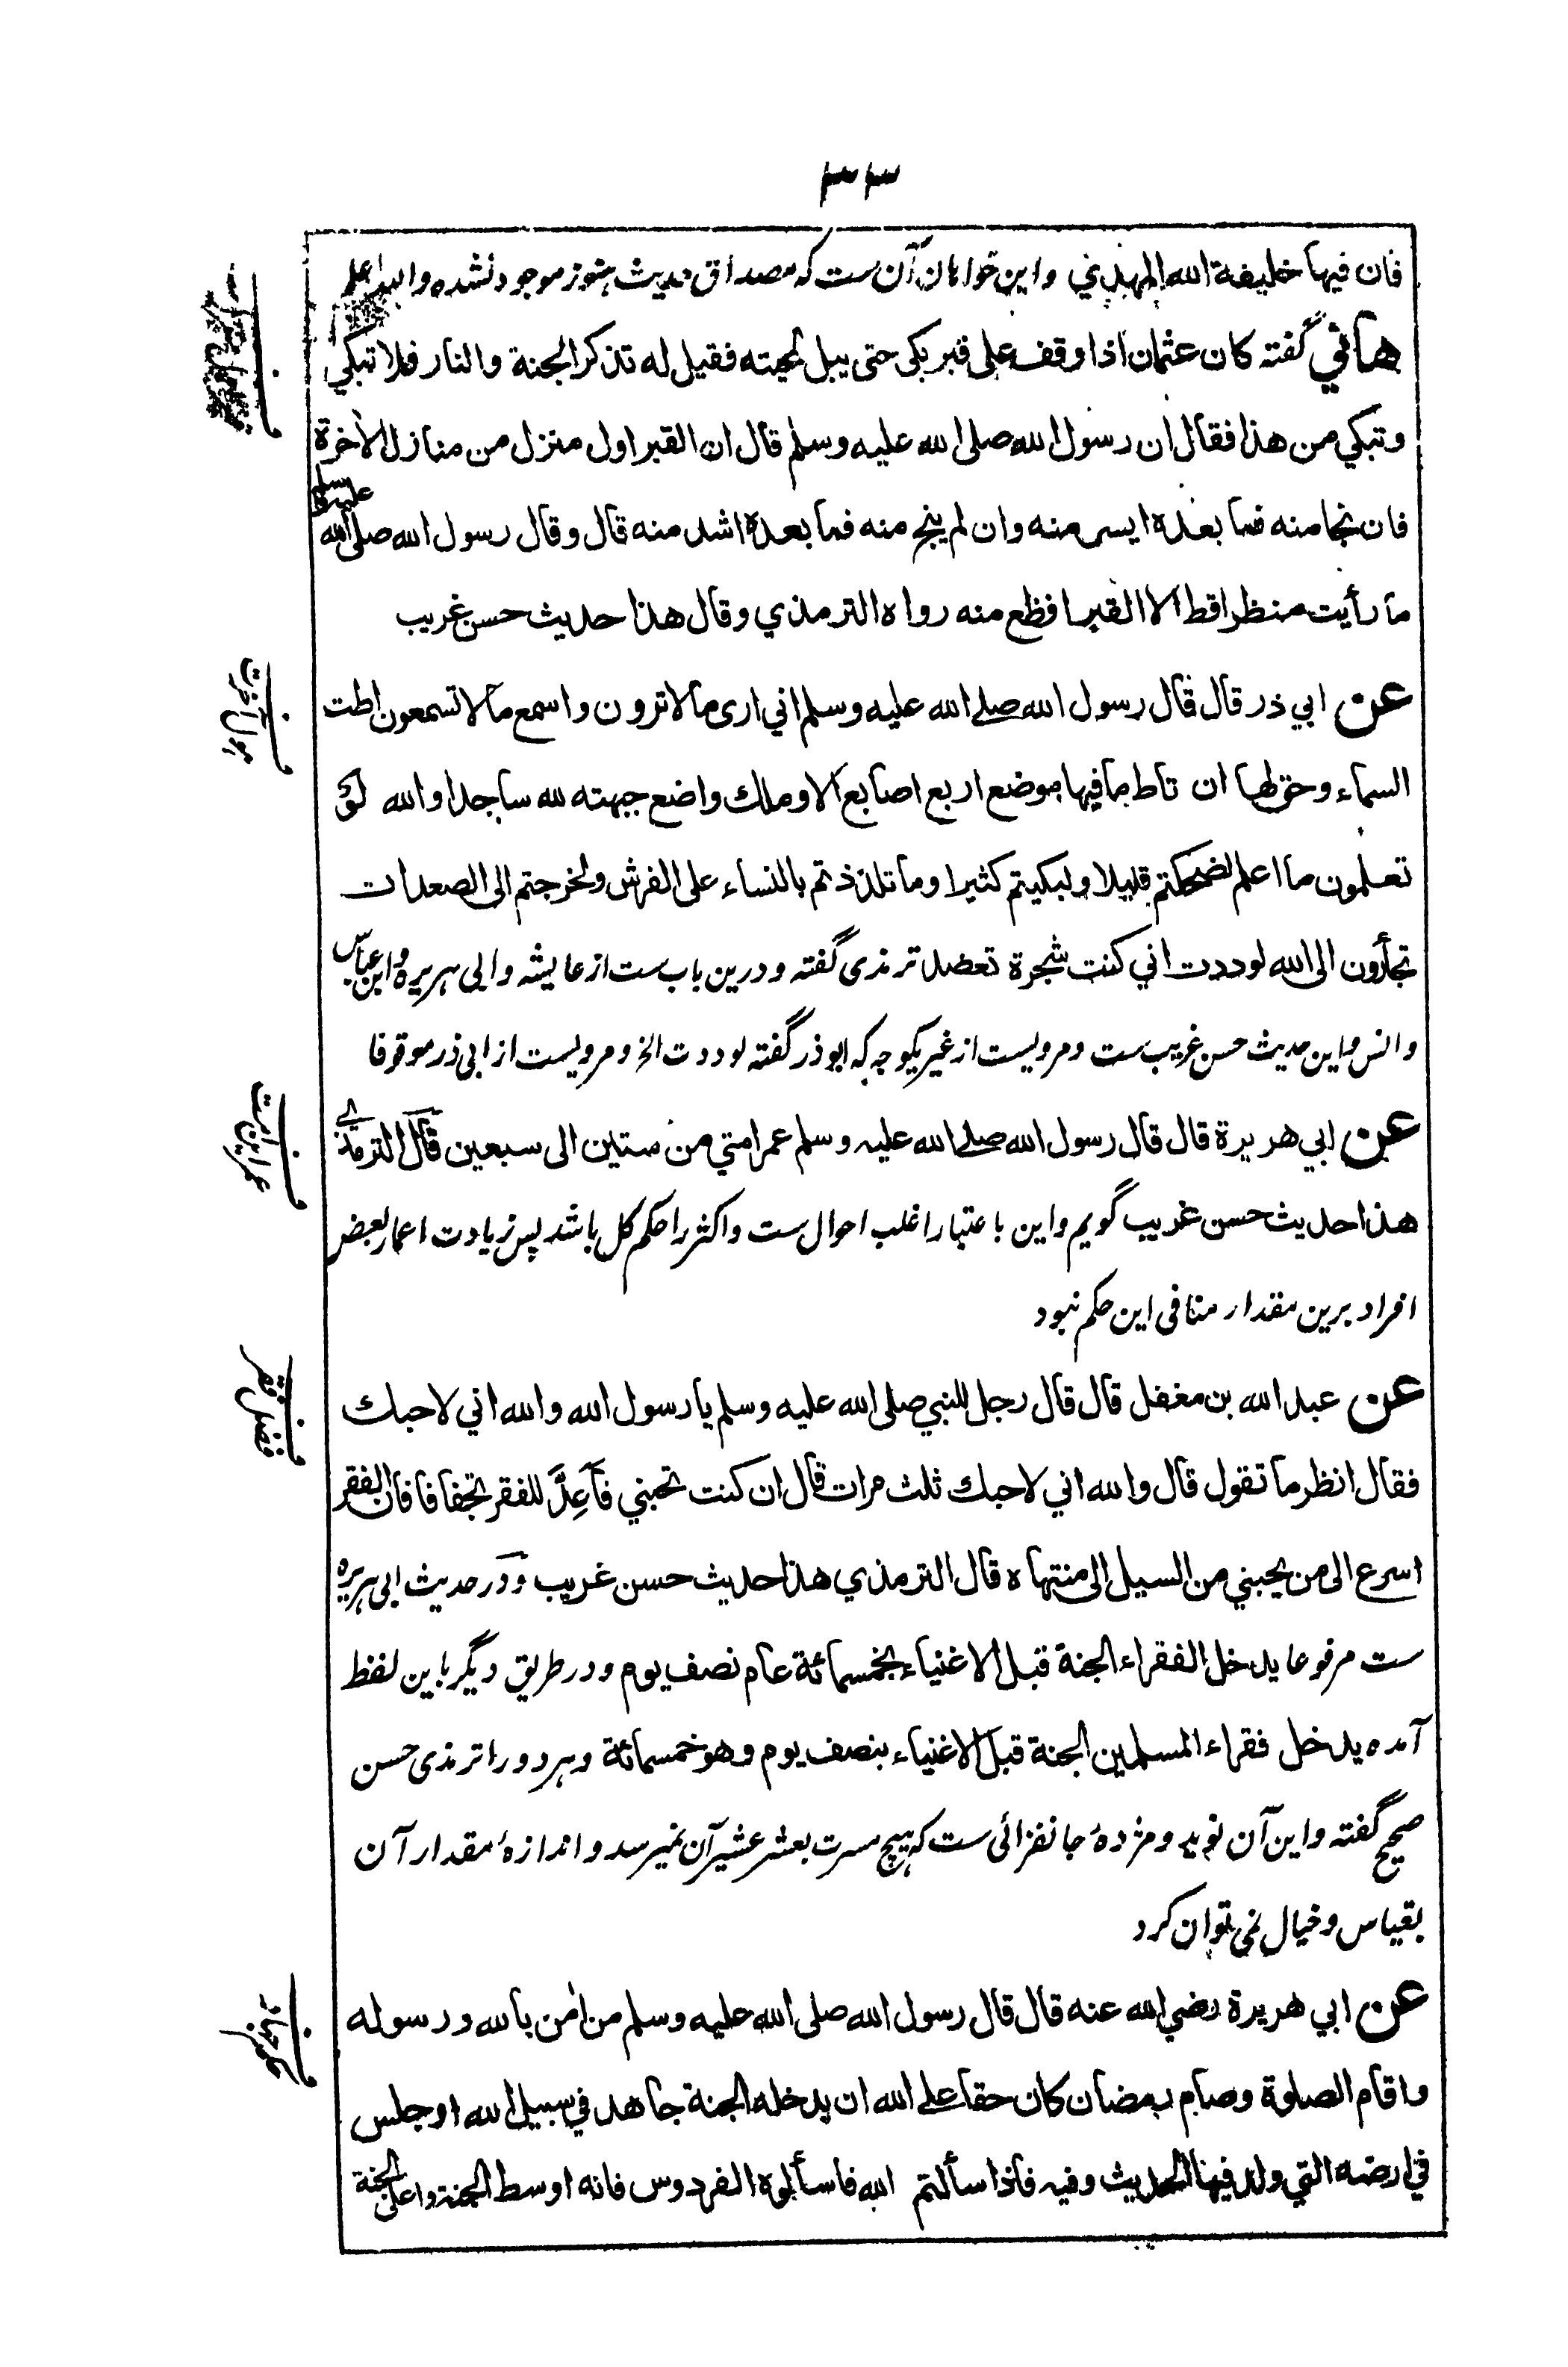 ٣٣
فان فيها خليفة الله المهدي واین خواهان آن ست که مصداق حدیث هنوز موجود نشده والله اعلم
هاني گفته كان عثمان اذا وقف على قبر بكى حتى يبل لحيته فقيل له تذكر الجنة والنار فلا تبكي
وتبكي من هذا فقال ان رسول الله صلى الله عليه وسلم قال ان القبر اول منزل من منازل الاخرة
فان نجا منه فما بعده ايسر منه وان لم ينج منه فما بعده اشد منه قال وقال رسول الله صلى الله عليه وسلم
ما رأيت منظرا قط الا القبر افظع منه رواه الترمذي وقال هذا حديث حسن غريب
هول آخرت
عن ابي ذر قال قال رسول الله صلے الله عليه وسلم اني ارى ما لا ترون واسمع ما لا تسمعون اطت
السماء وحق لها ان تاط ما فيها موضع اربع اصابع الا وملك واضع جبهته لله ساجدا والله لو
تعلمون ما اعلم لضحكتم قليلا ولبكيتم كثيرا وما تلذذتم بالنساء على الفرش ولخرجتم الى الصعدات
تجأرون الى الله لوددت اني كنت شجرة تعضد ترمذی گفته ودرین باب ست از عایشه وابی هریره وابن عباس
وانس واین حدیث حسن غریب ست ومرویست از غیر یکوجه که ابوذر گفته لوددت الخ ومرویست از ابی ذر موقوفا
عمر این امت
عن ابي هريرة قال قال رسول الله صلے الله عليه وسلم عمر امتي من ستين الى سبعين قال الترمذي
هذا حديث حسن غريب گویم واین باعتبار اغلب احوال ست واکثر را حکم کل باشد پس زیادت اعمار بعض
افراد برین مقدار منافی این حکم نبود
فضل فقر
عن عبد الله بن مغفل قال قال رجل للنبي صلى الله عليه وسلم يا رسول الله والله اني لاحبك
فقال انظر ما تقول قال والله اني لاحبك ثلث مرات قال ان كنت تحبني فَأَعِدَّ للفقر تجفافا فان الفقر
اسرع الى من يحبني من السيل الى منتهاه قال الترمذي هذا حديث حسن غريب ودر حدیث ابی هریره
ست مرفوعا يدخل الفقراء الجنة قبل الاغنياء بخمسمائة عام نصف يوم ودر طریق دیگر باین لفظ
آمده يدخل فقراء المسلمين الجنة قبل الاغنياء بنصف يوم وهو خمسمائة وهر دو را ترمذی حسن
صحیح گفته واین آن نوید ومژدۀ جانفزائی ست که هیچ مسرت بعشر عشیر آن نمیرسد واندازۀ مقدار آن
بقیاس وخیال نمی توان کرد
عن ابي هريرة رضي الله عنه قال قال رسول الله صلى الله عليه وسلم من اٰمن بالله ورسوله
واقام الصلوة وصام رمضان كان حقا علے الله ان يدخله الجنة جاهد في سبيل الله او جلس
في ارضه التي ولد فيها الحديث وفيه فاذا سألتم الله فاسألوه الفردوس فانه اوسط الجنة واعلى الجنة